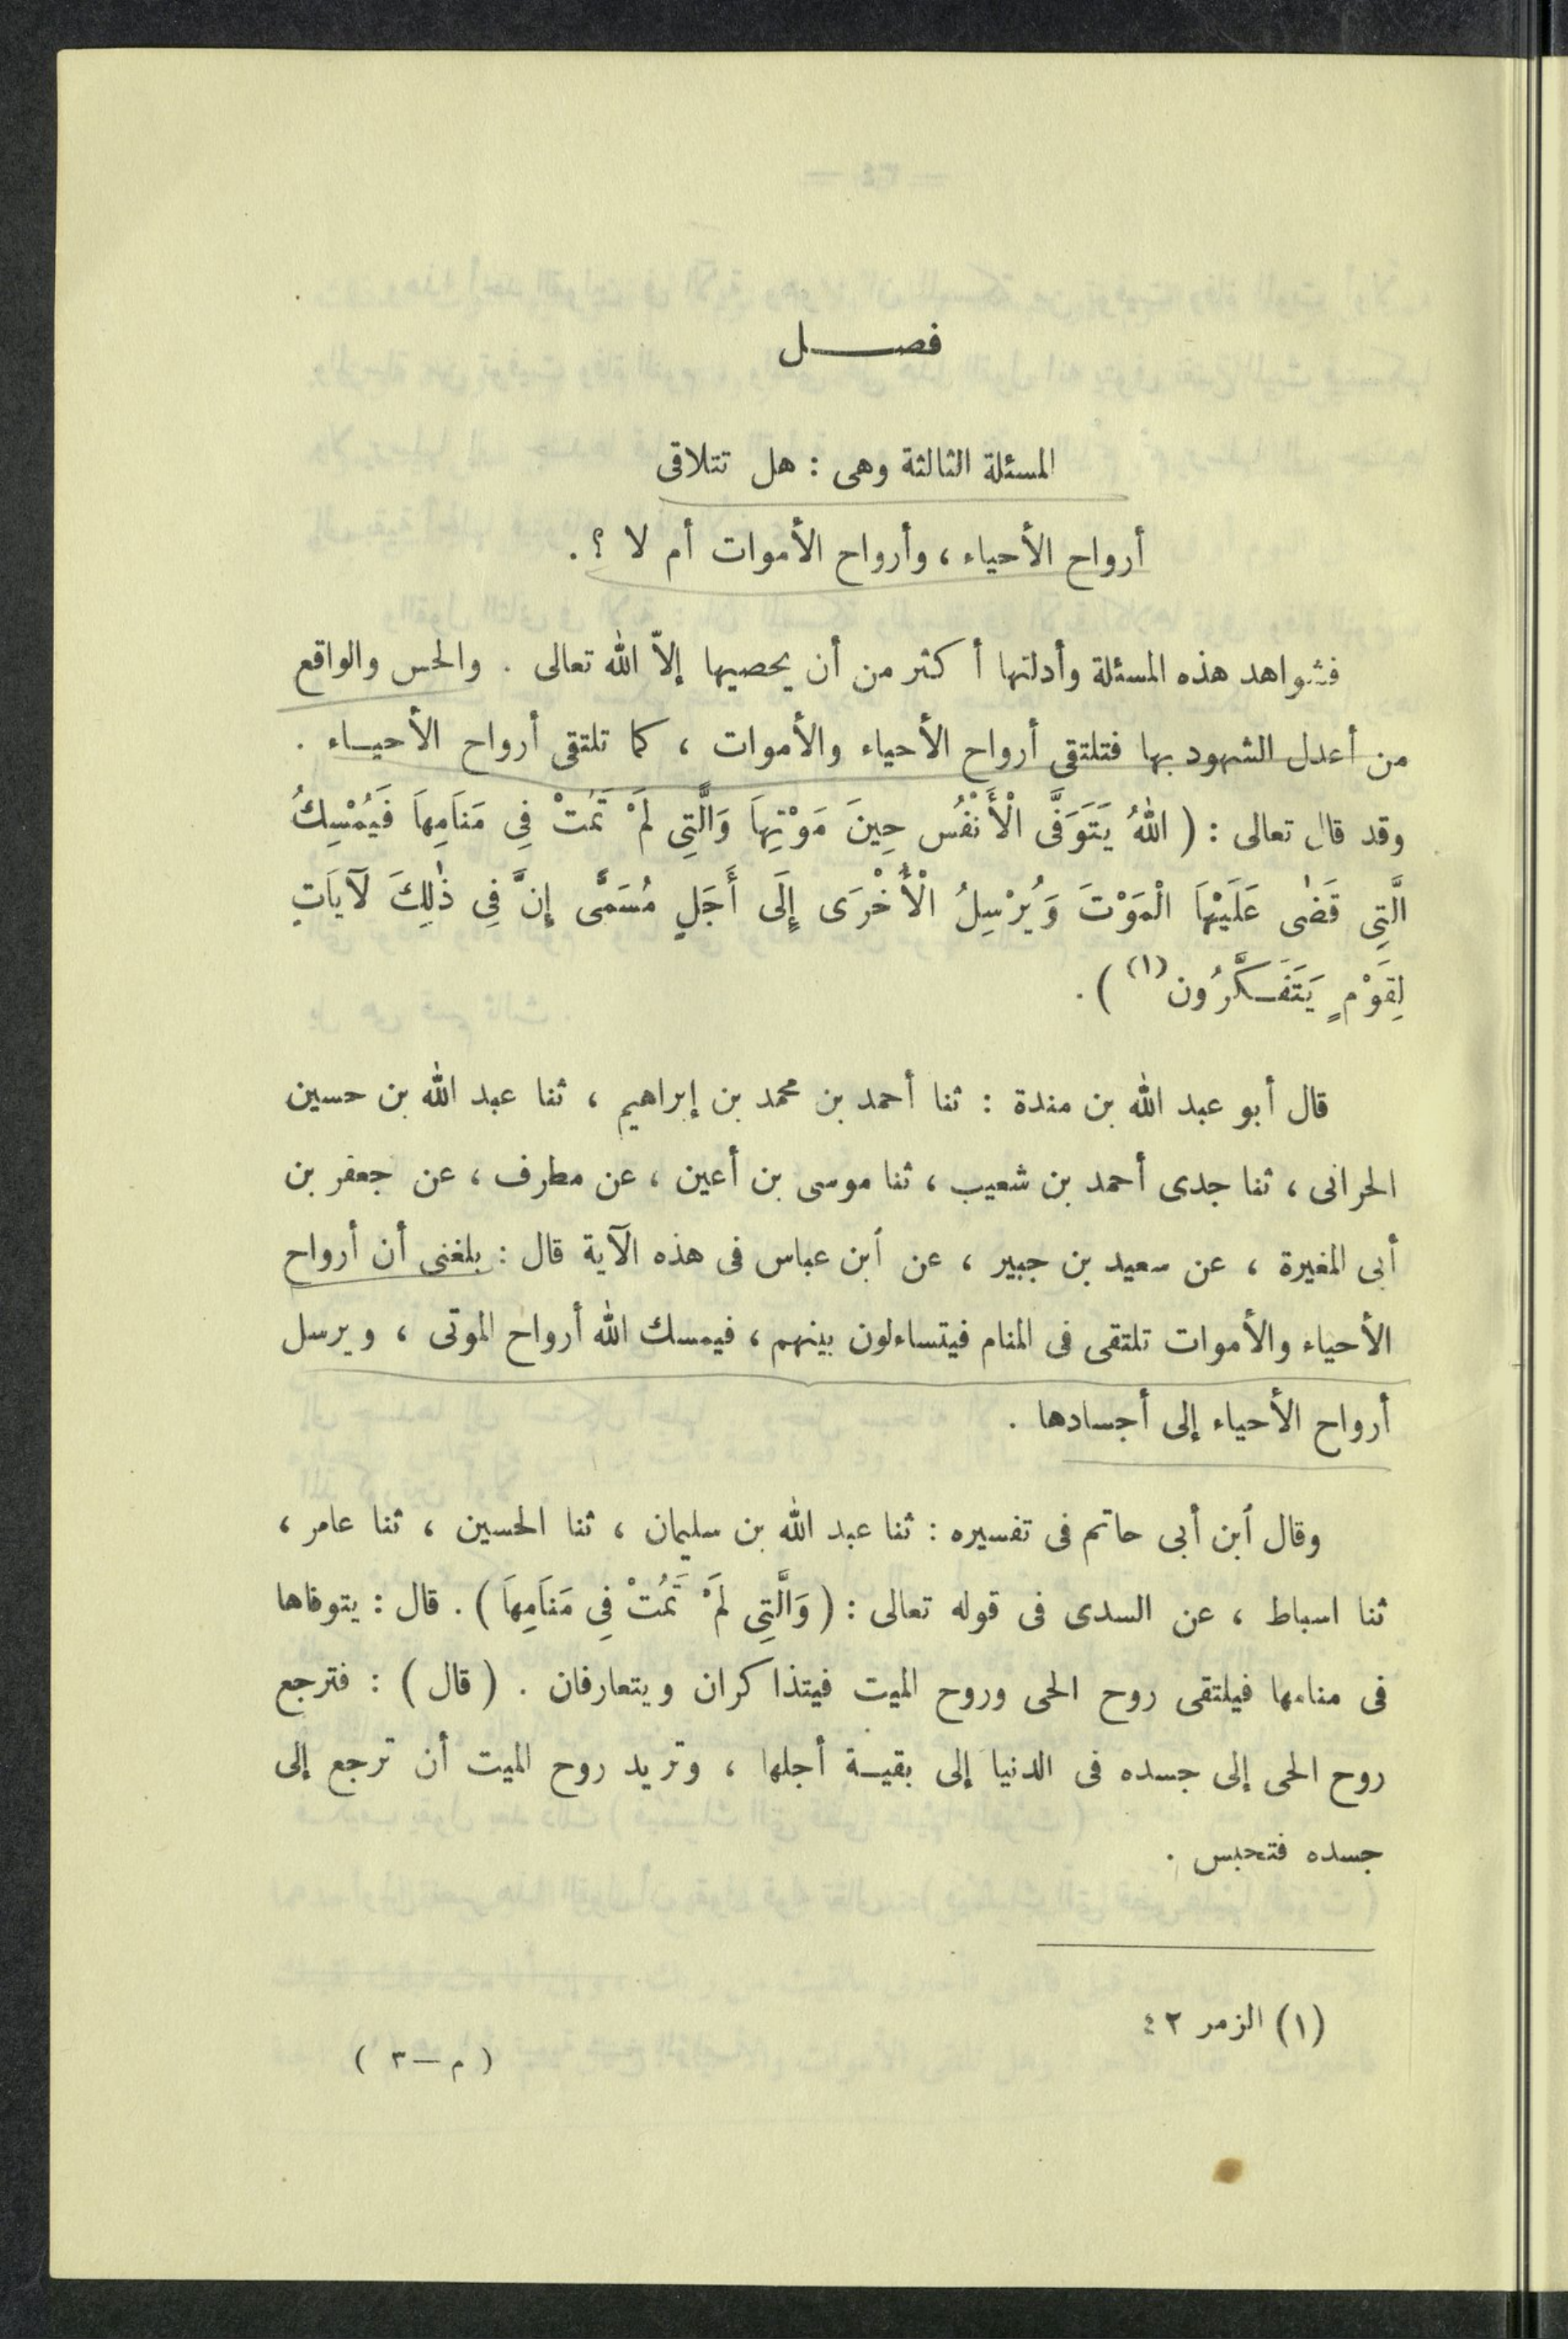 فصــــل
المسئلة الثالثة وهى : هل تتلاقى
أرواح الأحياء ، وأرواح الأموات أم لا ؟ .
فشواهد هذه المسئلة وأدلتها أكثر من أن يحصيها إلاّ الله تعالى . والحس والواقع
من أعدل الشهود بها فتلتقى أرواح الأحياء والأموات ، كما تلتقى أرواح الأحيــاء .
وقد قال تعالى : ( اللهُ يَتَوَفَّى الْأَنْفُس حِينَ مَوْتِهَا وَالَّتِى لَمْ تَمُتْ فِي مَنَامِهَا فَيُمْسِكُ
الَّتِى قَضٰى عَلَيْهَا الْمَوْتَ وَيُرْسِلُ الْأُخْرَى إِلَى أَجَلٍ مُسَمًّى إِنَّ فِي ذٰلِكَ لَآيَاتٍ
لِقَوْمٍ يَتَفَكَّرُون (١) ) .
قال أبو عبد الله بن مندة : ثنا أحمد بن محمد بن إبراهيم ، ثنا عبد الله بن حسين
الحرانى ، ثنا جدى أحمد بن شعيب ، ثنا موسى بن أعين ، عن مطرف ، عن جعفر بن
أبى المغيرة ، عن سعيد بن جبير ، عن ابن عباس فى هذه الآية قال : بلغنى أن أرواح
الأحياء والأموات تلتقى فى المنام فيتساءلون بينهم ، فيمسك الله أرواح الموتى ، ويرسل
أرواح الأحياء إلى أجسادها .
وقال ابن أبى حاتم فى تفسيره : ثنا عبد الله بن سليمان ، ثنا الحسين ، ثنا عامر ،
ثنا اسباط ، عن السدى فى قوله تعالى : ( وَالَّتِى لَمْ تَمُتْ فِي مَنَامِهَا ) . قال : يتوفاها
فى منامها فيلتقى روح الحى وروح الميت فيتذاكران ويتعارفان . ( قال ) : فترجع
روح الحى إلى جسده فى الدنيا إلى بقيــة أجلها ، وتريد روح الميت أن ترجع إلى
جسده فتحبس .
(١) الزمر ٤٢
( م — ٣ )